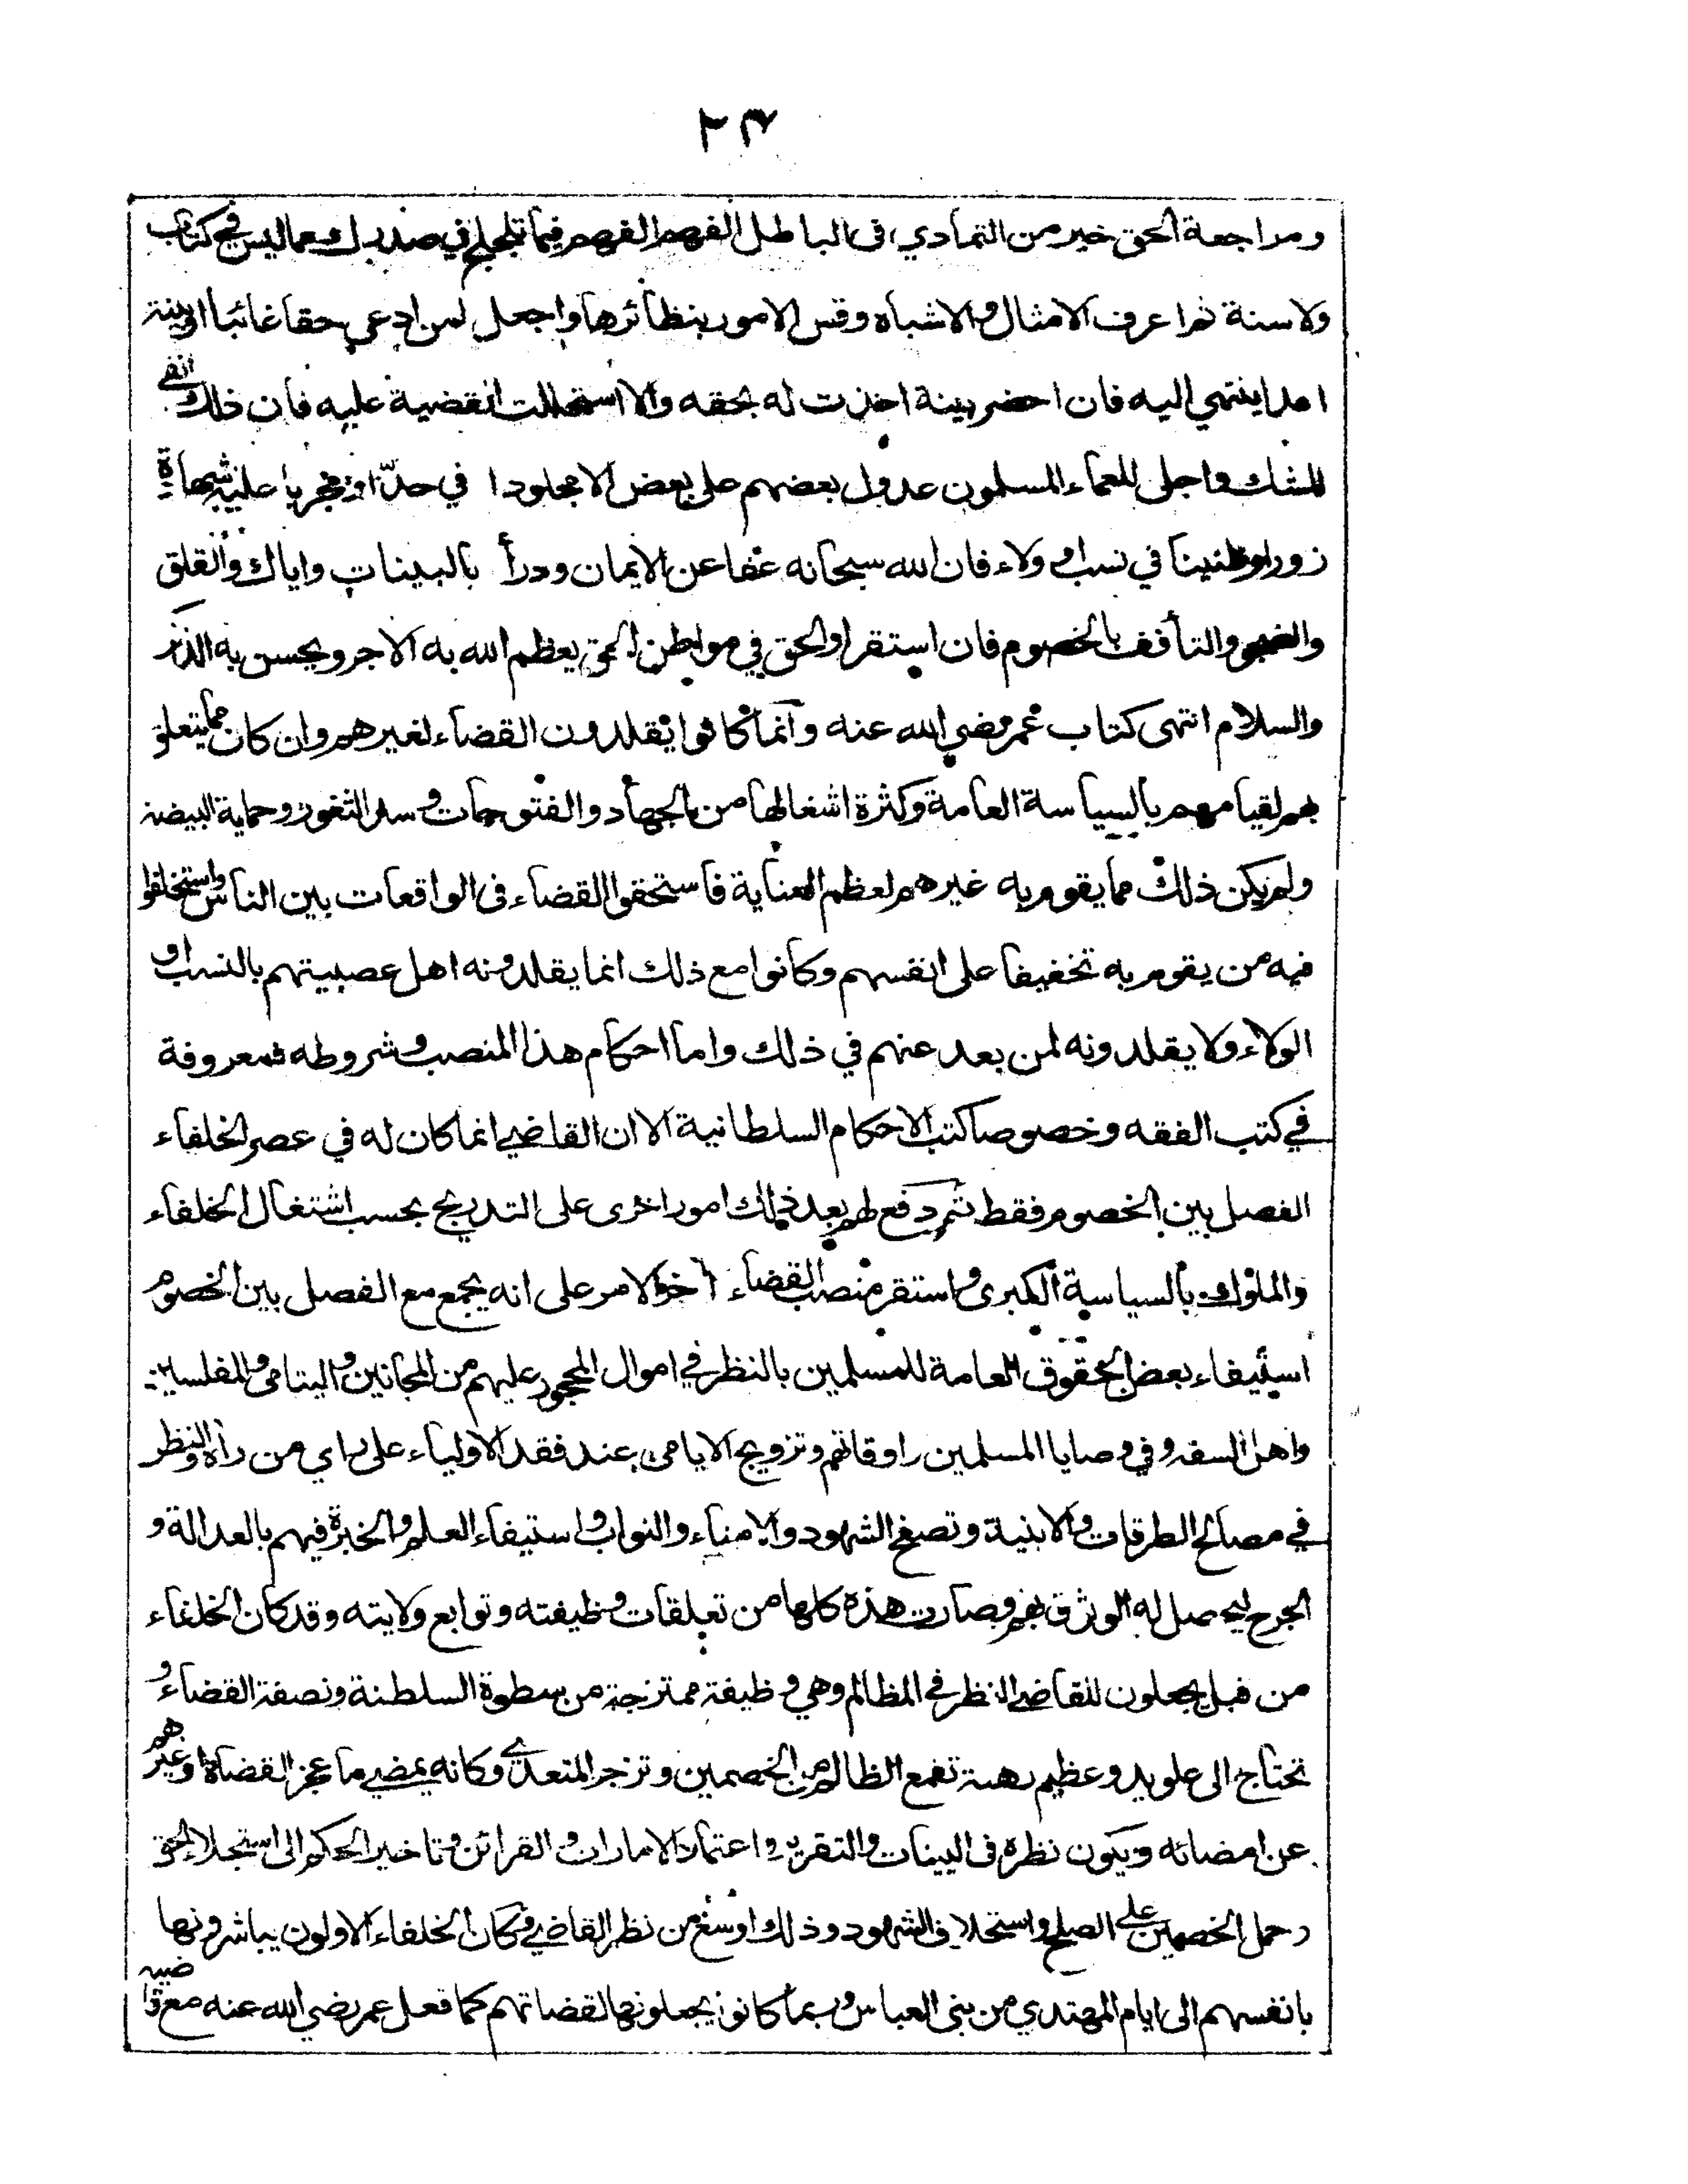 ٢٣
ومراجعة الحق خير من التمادي في الباطل الفهم الفهم فيما تلجلج في صدرك مماليس في كتاب
ولا سنة ثم اعرف الامثال والاشباه وقس الامور بنظائرها واجعل لمن ادعي حقا غائبا او بينة
امدا ينتهي اليه فان احضر بينة اخذت له بحقه والا استحللت القضية عليه فان ذلك انفي
للشك واجلى للعماء المسلمون عدول بعضهم على بعض الا مجلودا في حدّ او مجربا عليه شهادة
زور او ظنينا في نسب او ولاء فان الله سبحانه عفا عن الايمان ودرأ بالبينات واياك والقلق
والضجر والتأفف بالخصوم فان استقرار الحق في مواطن الحق يعظم الله به الاجر ويحسن به الذكر
والسلام انتهى كتاب عمر رضي الله عنه وانما كانوا يقلدون القضاء لغيرهم وان كان مما يتعلق
بهم لقيامهم بالسياسة العامة وكثرة اشغالها من الجهاد والفتوحات وسد الثغور وحماية البيضة
ولم يكن ذلك مما يقوم به غيرهم لعظم العناية فاستحقوا القضاء في الواقعات بين الناس واستخلفوا
فيه من يقوم به تخفيفا على انفسهم وكانوا مع ذلك انما يقلدونه اهل عصبيتهم بالنسب او
الولاء ولا يقلدونه لمن بعد عنهم في ذلك واما احكام هذا المنصب وشروطه فمعروفة
في كتب الفقه وخصوصا كتب الاحكام السلطانية الا ان القاضي انما كان له في عصر الخلفاء
الفصل بين الخصوم فقط ثم دفع لهم بعد ذلك امور اخرى على التدريج بحسب اشتغال الخلفاء
والملوك بالسياسة الكبرى واستقر منصب القضاء اخر الامر على انه يجمع مع الفصل بين الخصوم
استيفاء بعض الحقوق العامة للمسلمين بالنظر في اموال المحجور عليهم من المجانين واليتامى والمفلسين
واهل السفه وفي وصايا المسلمين واوقاتهم وتزويج الايامى عند فقد الاولياء على راي من راه والنظر
في مصالح الطرقات والابنية وتصفح الشهود والامناء والنواب واستيفاء العلم والخبرة فيهم بالعدالة و
الجرح ليحصل له الوثوق بهم وصارت هذه كلها من تعلقات وظيفته وتوابع ولايته وقد كان الخلفاء
من قبل يجعلون للقاضي النظر في المظالم وهي وظيفة ممتزجة من سطوة السلطنة ونصفة القضاء و
تحتاج الى علو يد وعظيم رهبة تقمع الظالم من الخصمين وتزجر المتعدي وكانه يمضي ما عجز القضاة او غيرهم
عن امضائه ويكون نظره في البينات والتقرير واعتماد الامارات والقرائن وتاخير الحكم الى استجلاء الحق
وحمل الخصمين على الصلح واستحلاف الشهود وذلك اوسع من نظر القاضي وكان الخلفاء الاولون يباشرونها
بانفسهم الى ايام المهتدي من بني العباس وربما كانوا يجعلونها لقضاتهم كما فعل عمر رضي الله عنه مع قاضيه